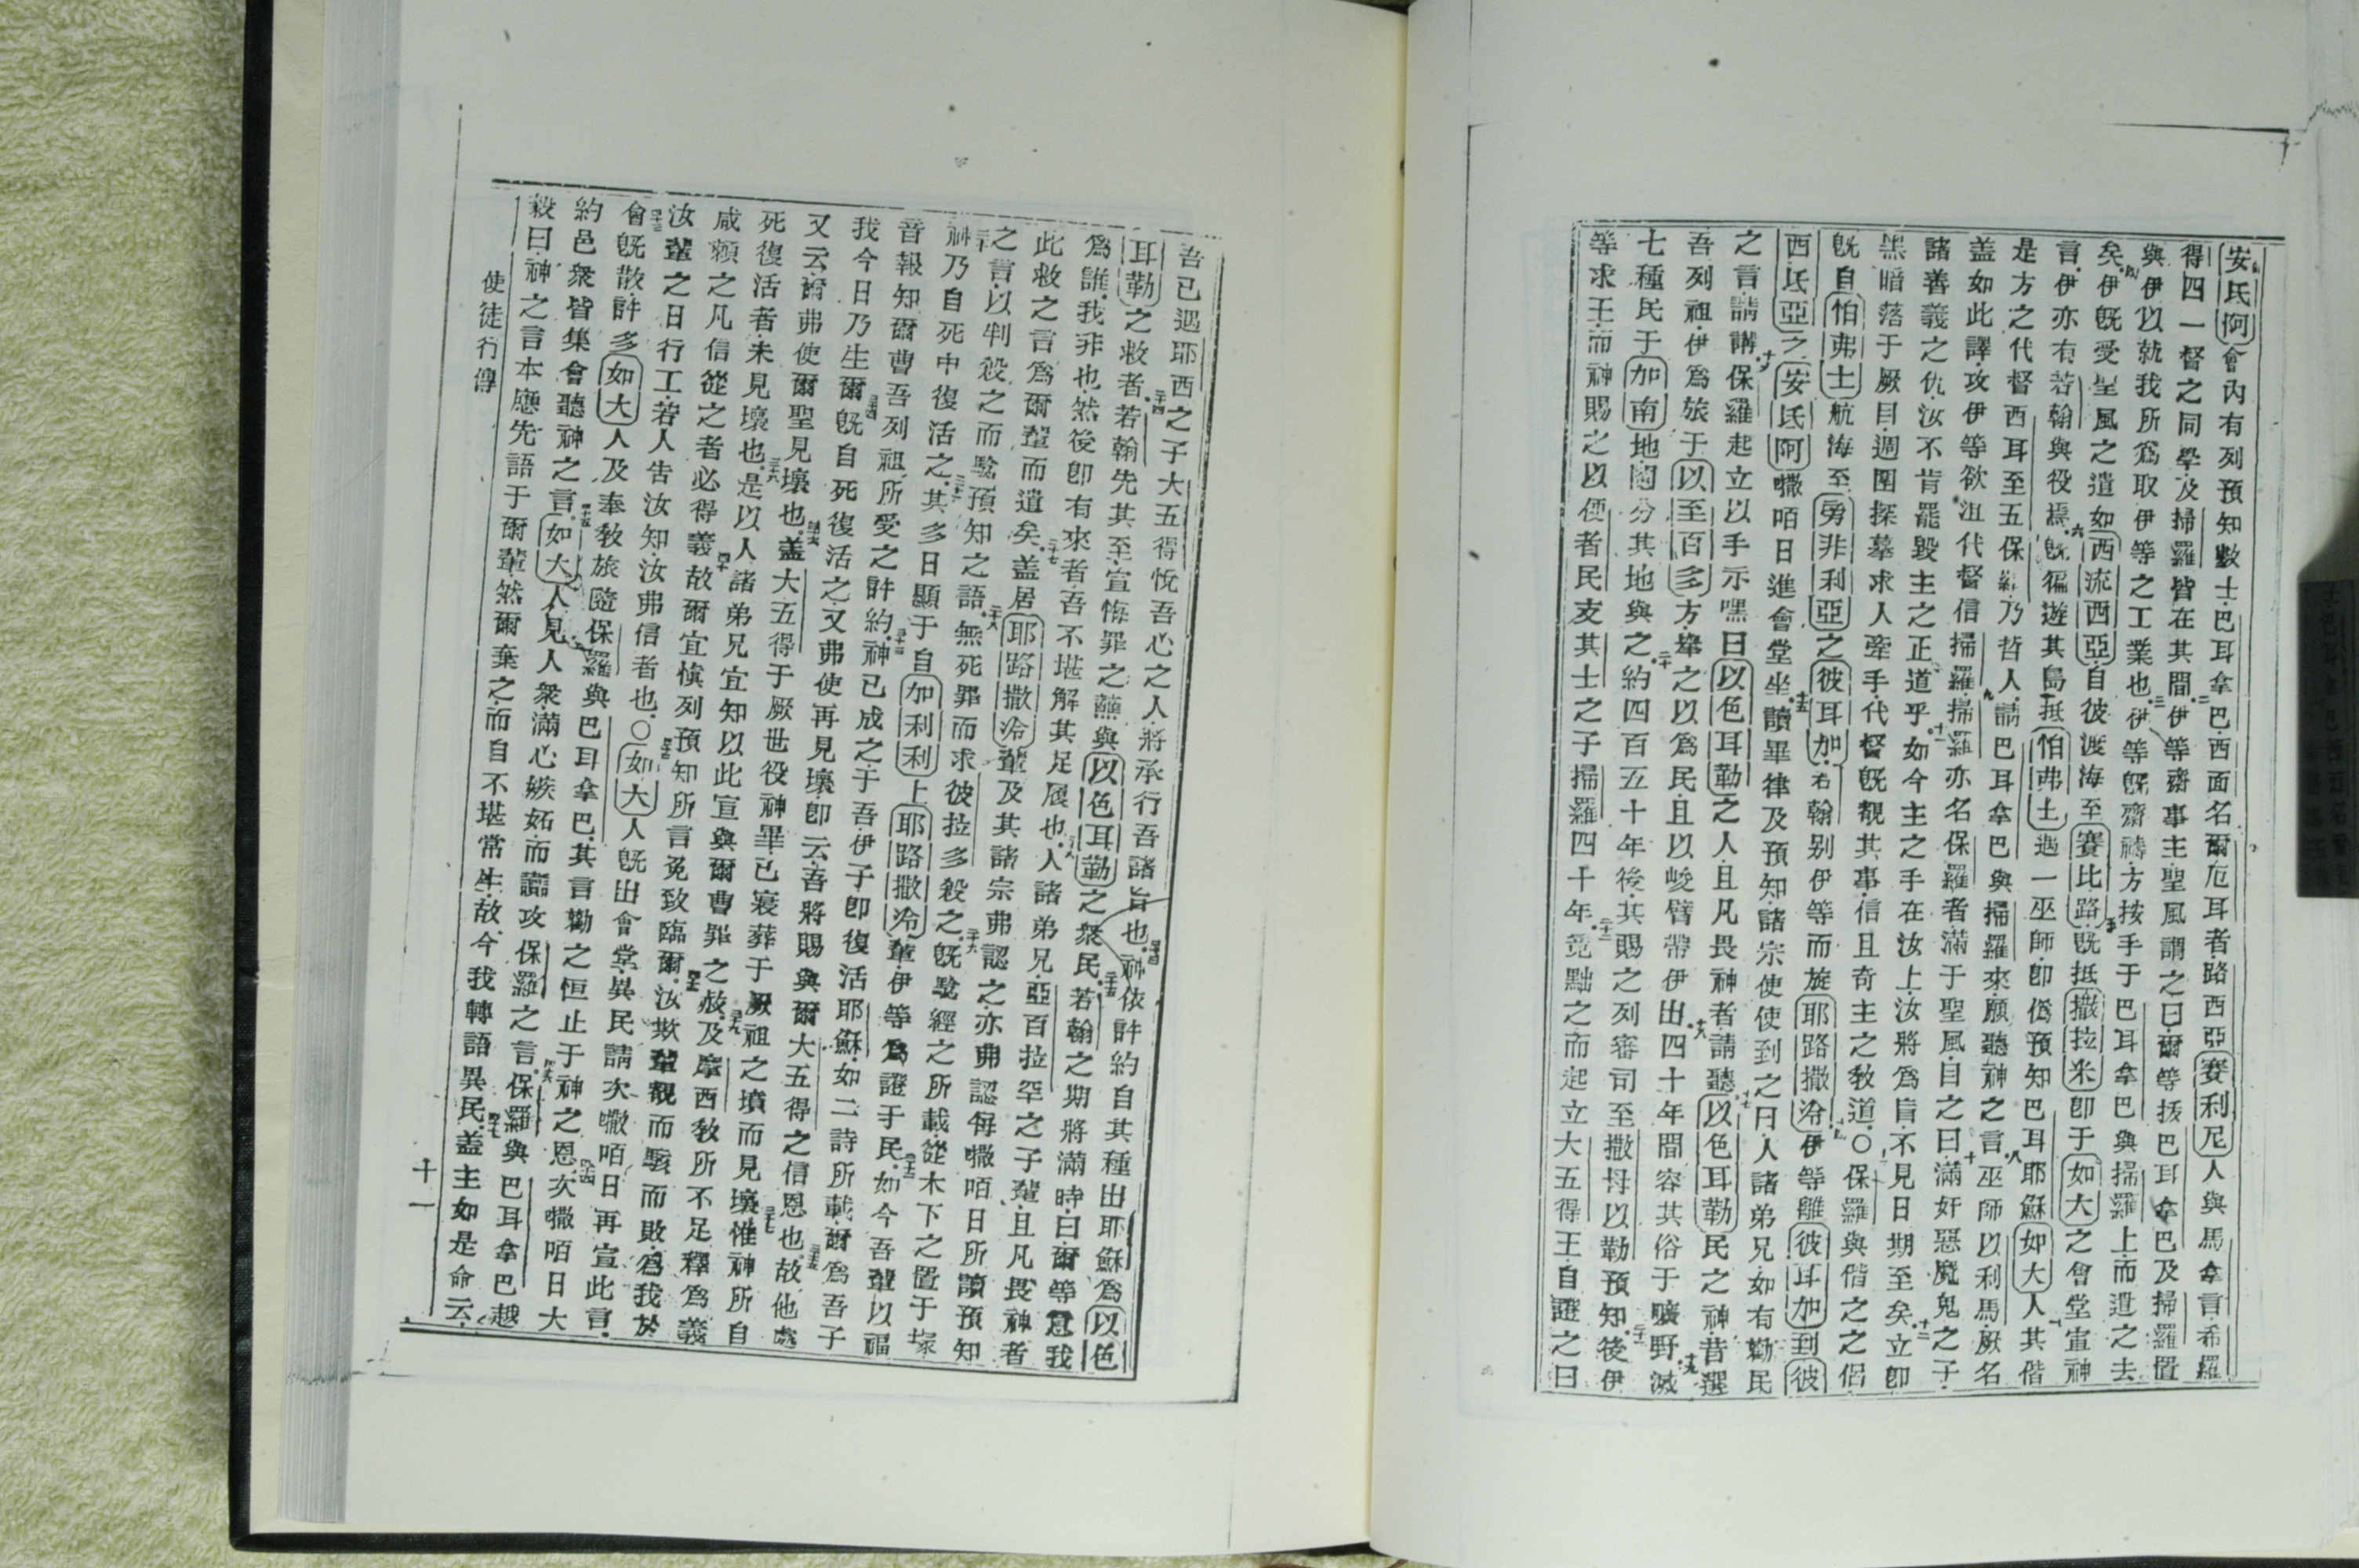 安氐阿會內有列預知數士巴耳拿巴西面名爾厄耳者路西亞賽利尼人與馬拿言希羅
得四一督之同學及掃羅皆在其間二伊等齋事主聖風謂之曰爾等拔巴耳拿巴及掃羅置
與伊以就我所爲取伊等之工業也三伊等既齋禱方按手于巴耳拿巴與掃羅上而遣之去
矣四伊既受聖風之遣如西流西亞自彼渡海至賽比路五既抵撒拉米卽于如大之會堂宣神
言伊亦有若翰與役焉六既徧遊其島抵怕弗士遇一巫師卽僞預知巴耳耶穌如大人其偕
是方之代督西耳至五保羅乃哲人請巴耳拿巴與掃羅來願聽神之言八巫師以利馬厥名
盖如此譯攻伊等欲沮代督信掃羅九掃羅亦名保羅者滿于聖風自之曰十滿奸惡魔鬼之子
諸善義之仇汝不肯罷毀主之正道乎十一如今主之手在汝上汝將爲盲不見日期至矣立卽
黑暗落于厥目週圍探摹求人牽手十二代督既覩其事信且奇主之教道〇保羅與偕之之侶
既自怕弗士航海至旁非利亞之彼耳加右翰别伊等而旋耶路撒冷十四伊等離彼耳加到彼
西氐亞之安氐阿嚫咟日進會堂坐十五讀畢律及預知諸宗使使到之曰人諸弟兄如有勸民
之言請講十六保羅起立以手示嘿曰以色耳勒之人且凡畏神者請聽十七以色耳勒民之神昔選
吾列祖伊爲旅于以至百多方擧之以爲民且以峻臂帶伊出十八四十年間容其俗于曠野十九滅
七種民于加南地鬮分其地與之二十約四百五十年後其賜之列審司至撒母以勒預知二十一後伊
等求王而神賜之以便者民支其士之子掃羅四十年二十二竟黜之而起立大五得王自證之曰
吾已遇耶西之子大五得悅吾心之人將承行吾諸旨也神依許約自其種出耶穌爲以色
耳勒之救者二十四若翰先其至宣悔罪之蘸與以色耳勒之衆民二十五若翰之期將滿時曰爾等意我
爲誰我非也然後卽有來者吾不堪解其足履也二十六人諸弟兄亞百拉罕之子輩且凡畏神者
此救之言爲爾輩而遣矣二十七盖居耶路撒冷輩及其諸宗弗認之亦弗認每嚫咟日所讀預知
之言以判殺之而騐預知之語二十八無死罪而求彼拉多殺之二十九既騐經之所載從木下之置于塚
三十神乃自死中復活之三十一其多日顯于自加利利上耶路撒冷輩伊等爲證于民三十二如今吾輩以福
音報知爾曹吾列祖所受之許約三十三神已成之于吾伊子卽復活耶穌如二詩所載爾爲吾子
我今日乃生爾三十四既自死復活之又弗使再見壞卽云吾將賜與爾大五得之信恩也三十五故他處
又云爾弗使爾聖見壞也三十六盖大五得于厥世役神畢已寢葬于厥祖之墳而見壞三十七惟神所自
死復活者未見壞也三十八是以人諸弟兄宜知以此宣與爾曹罪之赦三十九及摩西教所不足釋爲義
咸賴之凡信從之者必得義四十故爾宜愼列預知所言免致臨爾四十一汝欺輩覩而駭而敗爲我於
汝輩之日行工若人告汝知汝弗信者也〇四十二如大人既出會堂異民請次嚫咟日再宣此言
四十三會既散許多如大人及奉教旅隨保羅與巴耳拿巴其言勸之恒止于神之恩四十四次嚫咟日大
約邑衆皆集會聽神之言四十五如大人見人衆滿心嫉妬而讟攻保羅之言四十六保羅與巴耳拿巴越
毅曰神之言本應先語于爾輩然爾棄之而自不堪常生故今我轉語異民四十七盖主如是命云
使徒行傳
十一